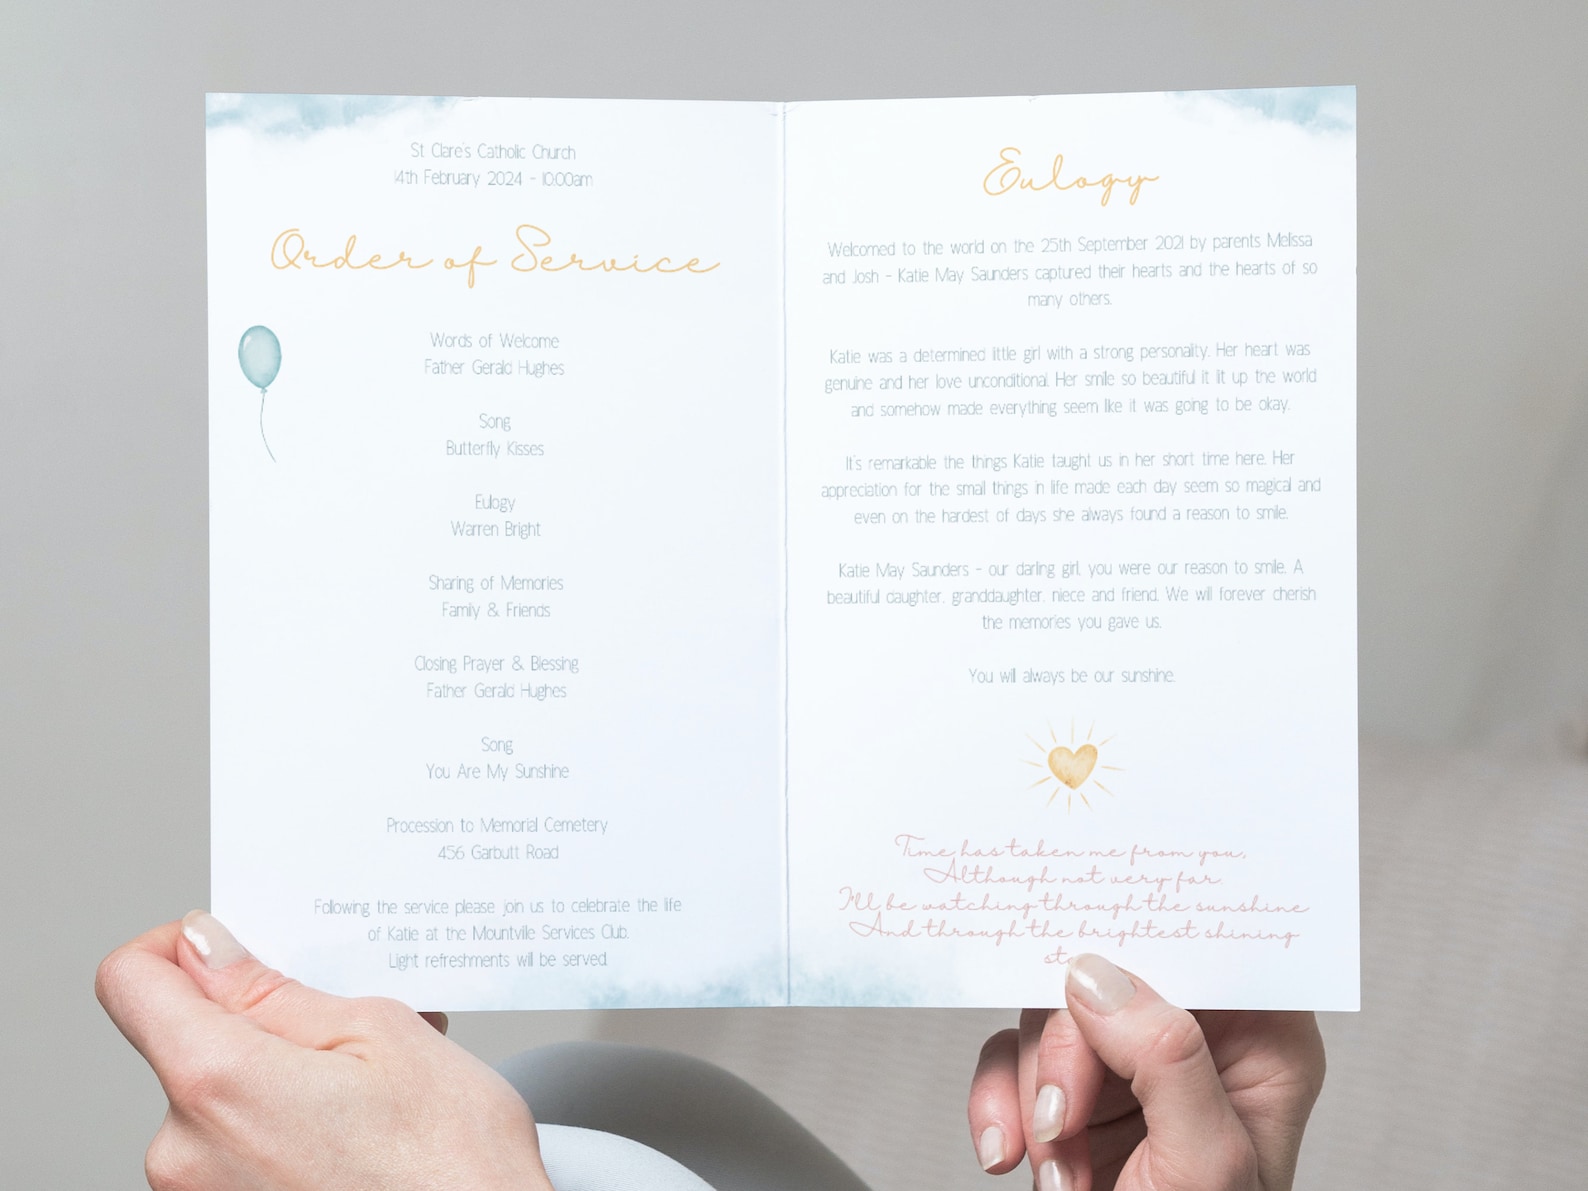 St Clare's Catholic Church
14th February 2024 - 10.00am
Order of Service
Words of Welcome
Father Gerald Hughes
Song
Butterfly Kisses
Eulogy
Warren Bright
Sharing of Memories
Family & Friends
Closing Prayer & Blessing
Father Gerald Hughes
Song
You Are My Sunshine
Procession to Memorial Cemetery
456 Garbutt Road
Following the service please join us to celebrate the life
of Katie at the Mountville Services Club.
Light refreshments will be served.
Eulogy
Welcomed to the world on the 25th September 2021 by parents Melissa
and Josh - Katie May Saunders captured their hearts and the hearts of so
many others.
Katie was a determined little girl with a strong personality. Her heart was
genuine and her love unconditional. Her smile so beautiful it lit up the world
and somehow made everything seem like it was going to be okay.
It's remarkable the things Katie taught us in her short time here. Her
appreciation for the small things in life made each day seem so magical and
even on the hardest of days she always found a reason to smile.
Katie May Saunders - our darling girl, you were our reason to smile. A
beautiful daughter, granddaughter, niece and friend. We will forever cherish
the memories you gave us.
You will always be our sunshine.
Time has taken me from you,
Although not very far.
I'll be watching through the sunshine
And through the brightest shining